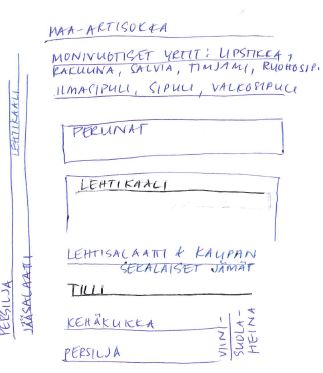 MAA-ARTISOKKA
MONIVUOTISET YRTIT: LIPSTIKKA,
RAKUUNA, SALVIA, TIMJAMI, RUOHOSIP.
ILMASIPULI, SIPULI, VALKOSIPULI
PERUNAT
LEHTIKAALI
LEHTISALAATTI & KAUPAN
SEKALAISET JÄMÄT
TILLI
KEHÄKUKKA
PERSILJA
VIINI-
SUOLA-
HEINÄ
LEHTIKAALI
PERSILJA
JÄÄSALAATI